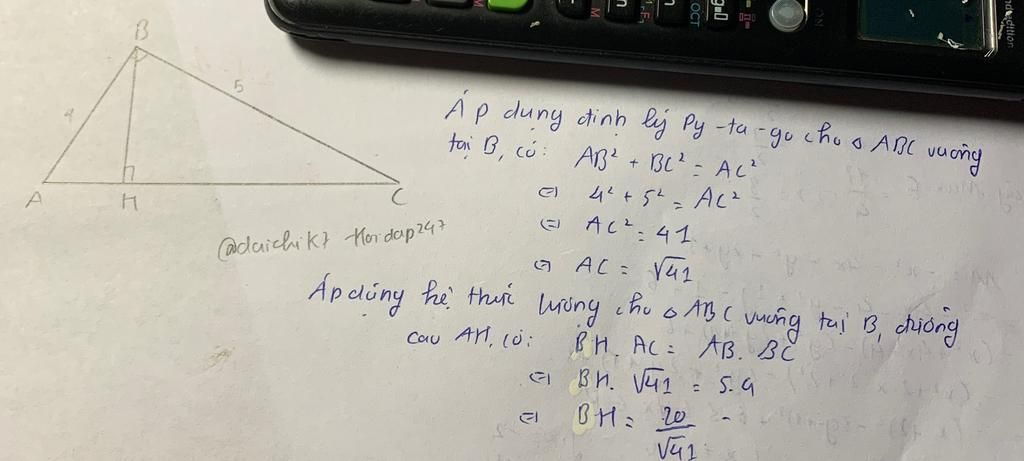 B
4
5
A
H
C
@daichik7 Hoidap247
Áp dụng định lý Py-ta-go cho △ ABC vuông
tại B, có: AB² + BC² = AC²
⇔ 4² + 5² = AC²
⇔ AC² = 41
⇔ AC = √41
Áp dụng hệ thức lượng cho △ ABC vuông tại B, đường
cao AH, có: BH. AC = AB. BC
⇔ BH. √41 = 5.4
⇔ BH = 20/√41